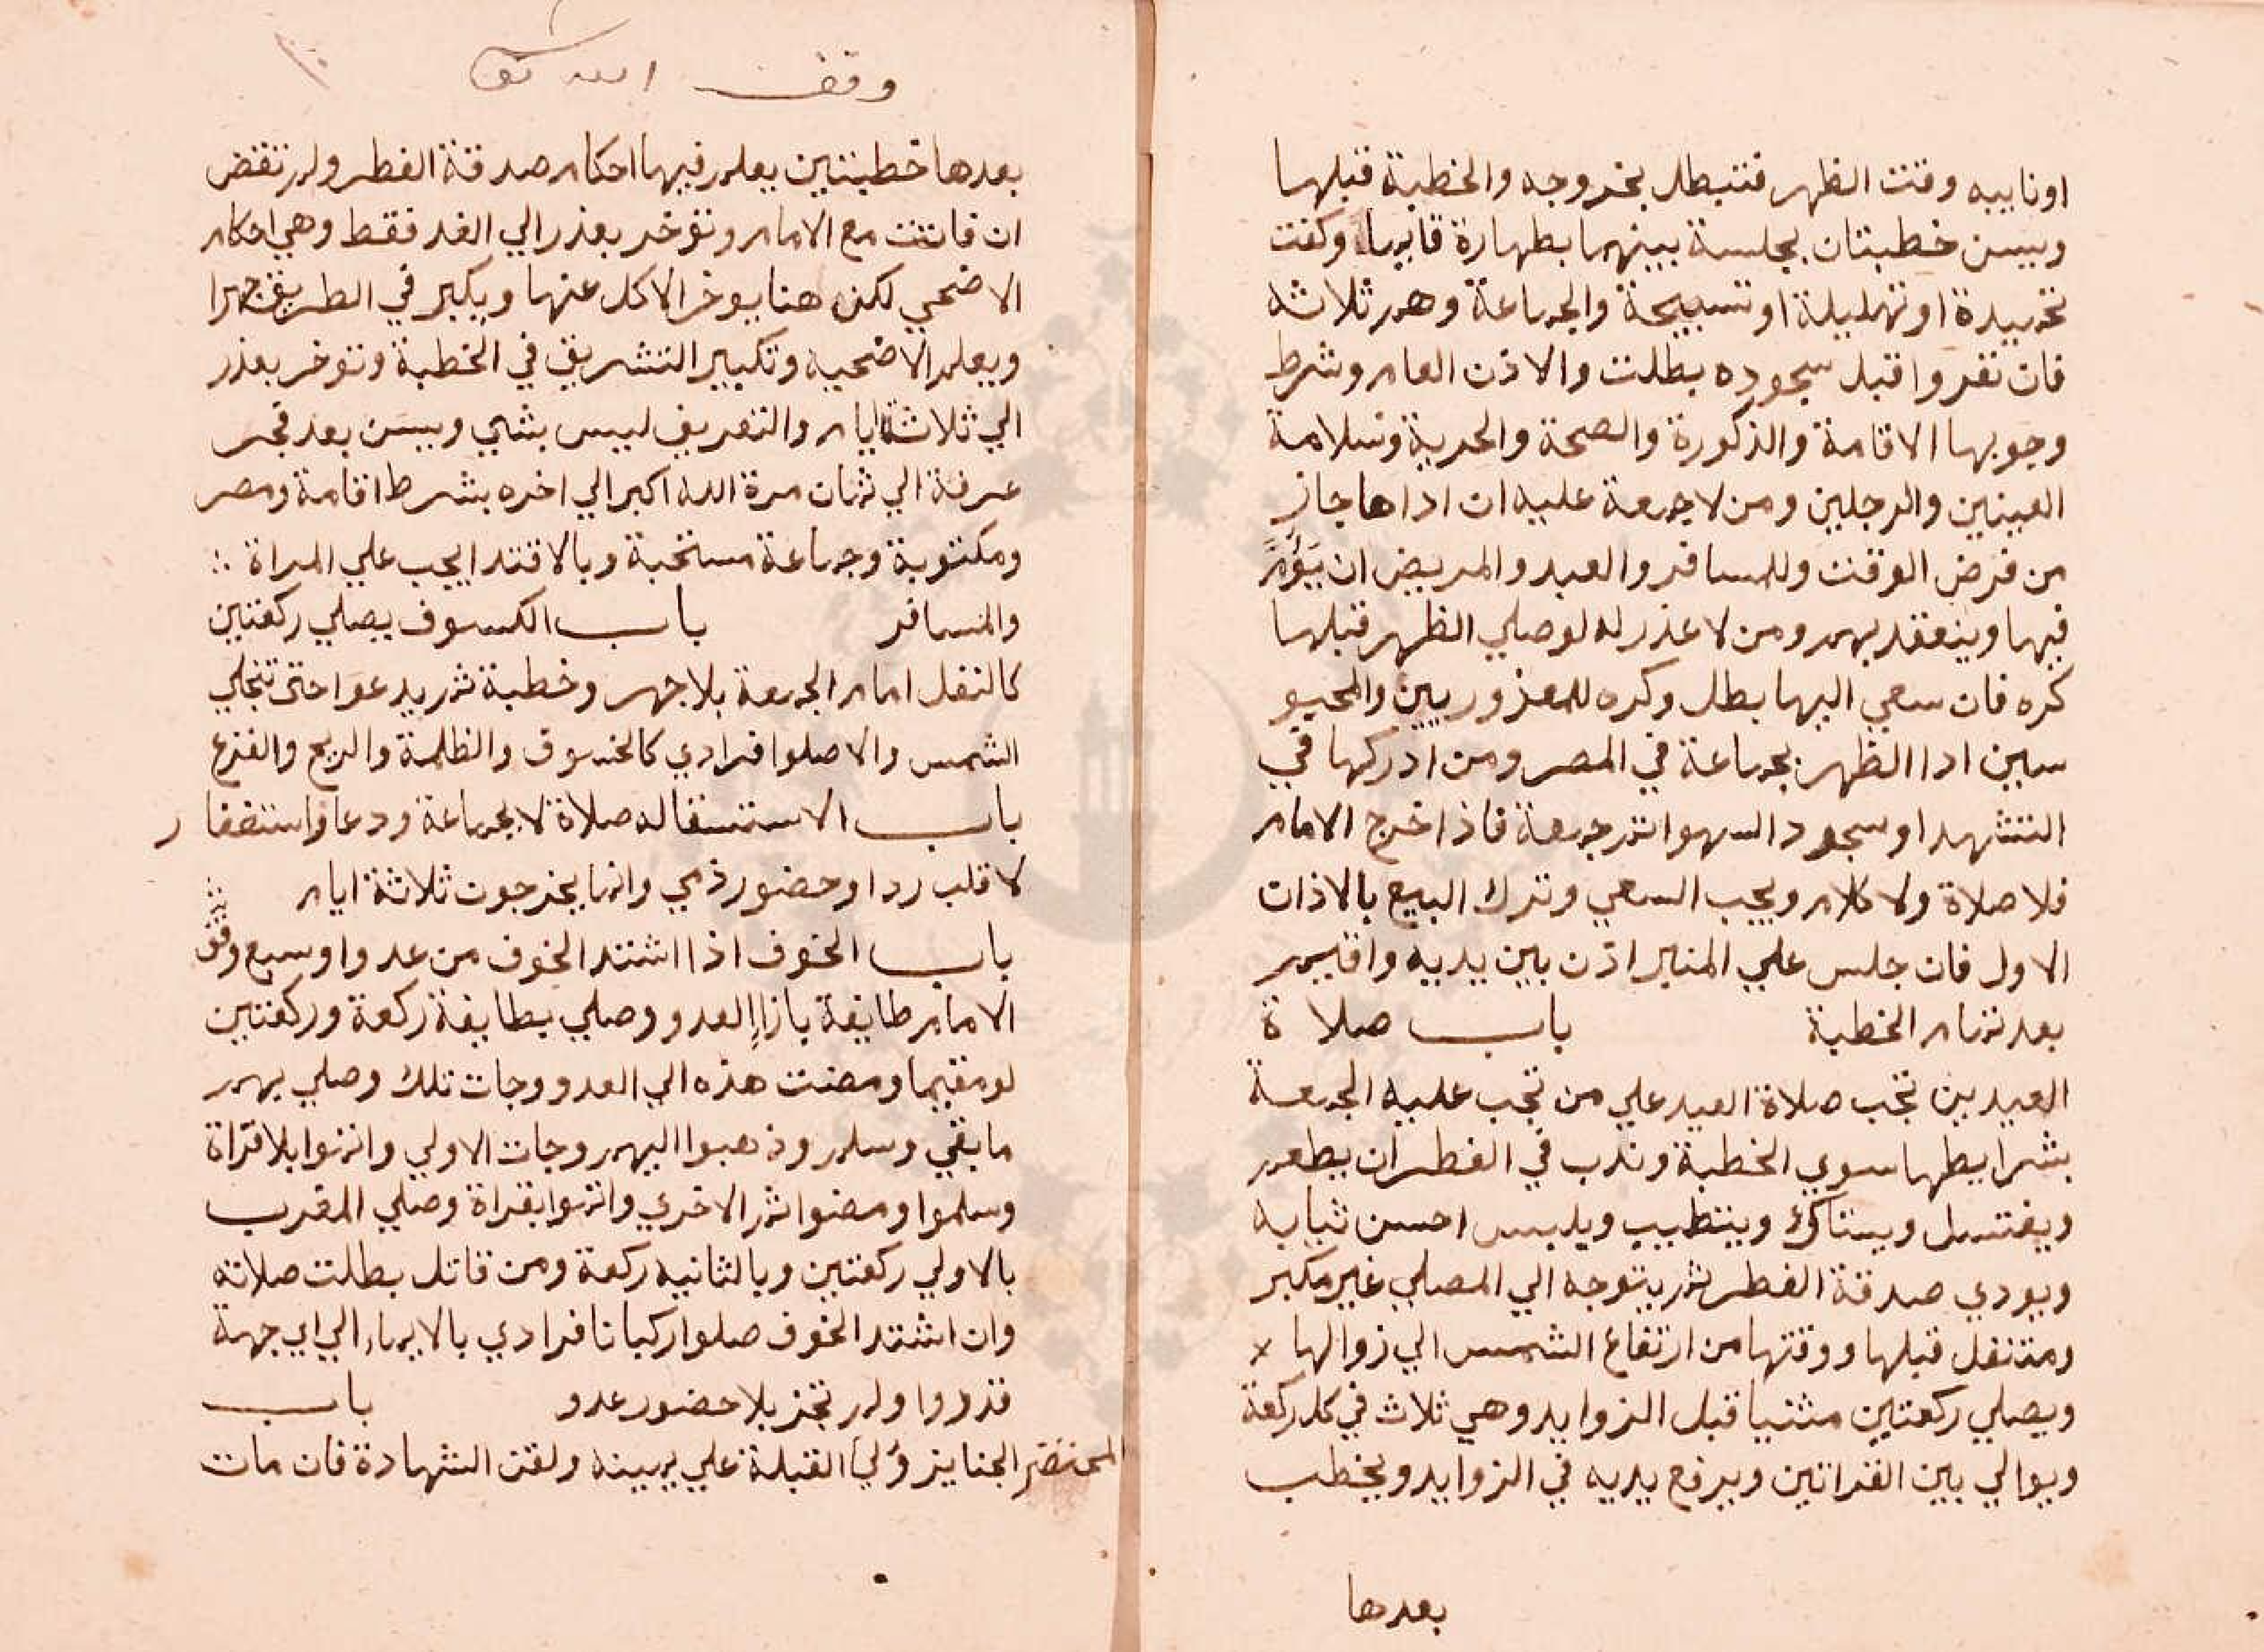 اونايبه ووقت الظهر فتبطل بخروجه والخطبة قبلها
ويسن خطبتان بجلسة بينهما بطهارة قايما وكفت
تحميدة او تهليلة او تسبيحة والجماعة وهم ثلاثه
فان نفروا قبل سجوده بطلت والاذن العام وشرط
وجوبها الاقامة والذكورة والصحة والحرية وسلامة
العينين والرجلين ومن لا جمعة عليه ان اداها جاز
من فرض الوقت وللمسافر والعبد والمريض ان يؤم
فيها وينعقد بهم ومن لا عذر له لو صلي الظهر قبلها
كره فان سعي اليها بطل وكره للمعذوريين والمحبو
سين ادا الظهر بجماعة في المصر ومن ادركها في
التشهد او سجود السهو اتم جمعة فاذا خرج الامام
فلا صلاة ولا كلام ويجب السعي وترك البيع بالاذان
الاول فان جلس علي المنبر اذن بين يديه واقيم
بعد تمام الخطبة باب صلا ة
العيدين تجب صلاة العيد علي من تجب عليه الجمعة
بشرايطها سوي الخطبة وندب في الفطر ان يطعم
ويغتسل ويستاك ويتطيب ويلبس احسن ثيابه
ويودي صدقة الفطر ثم يتوجه الي المصلي غير مكبر
ومتنفل قبلها ووقتها من ارتفاع الشمس الي زوالها
ويصلي ركعتين مثنيا قبل الزوايد وهي ثلاث في كل ركعة
ويوالي بين القراتين ويرفع يديه في الزوايد ويخطب
بعدها
وقف لله تعالى
بعدها خطبتين يعلم فيها احكام صدقة الفطر ولم تقض
ان فاتت مع الامام وتوخر بعذر الي الغد فقط وهي احكام
الاضحي لكن هنا يوخر الاكل عنها ويكبر في الطريق جهرا
ويعلم الاضحيه وتكبير التشريق في الخطبة وتوخر بعذر
الي ثلاثة ايام والتعريف ليس بشي ويسن بعد فجر
عرفة الي ثمان مرة الله اكبر الي اخره بشرط اقامة ومصر
ومكتوبة وجماعة مستحبة وبالاقتدا يجب علي المراة
والمسافر باب الكسوف يصلي ركعتين
كالنفل امام الجمعة بلا جهر وخطبة ثم يدعوا حتى تنجلي
الشمس والا صلوا فرادي كالخسوف والظلمة والريح والفزع
باب الاستسقا له صلاة لا بجماعة ودعا واستغفا ر
لا قلب ردا وحضور ذمي وانما يخرجون ثلاثة ايام
باب الخوف اذا اشتد الخوف من عدو او سبع وقف
الامام طايفة بازا العدو وصلي بطايفة ركعة وركعتين
لو مقيما ومضت هذه الي العدو وجات تلك وصلي بهم
ما بقي وسلم وذهبوا اليهم وجات الاولي واتموا بلا قراة
وسلموا ومضوا ثم الاخري واتموا بقراة وصلي المغرب
بالاولي ركعتين وبالثانيه ركعة ومن قاتل بطلت صلاته
وان اشتد الخوف صلوا ركبانا فرادي بالايماء الي اي جهة
قدروا ولم تجز بلا حضور عدو باب
الجنايز ولي المحتضر القبلة علي يمينه ولقن الشهادة فان مات